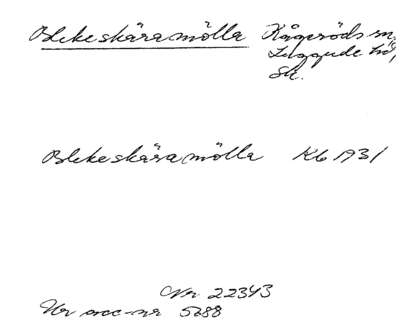 Blekeskäramölla Kågeröds sn,
Luggude hd,
Sk.
Blekeskäramölla Kb 1931
Nr 22343
Ur acc-nr 5688